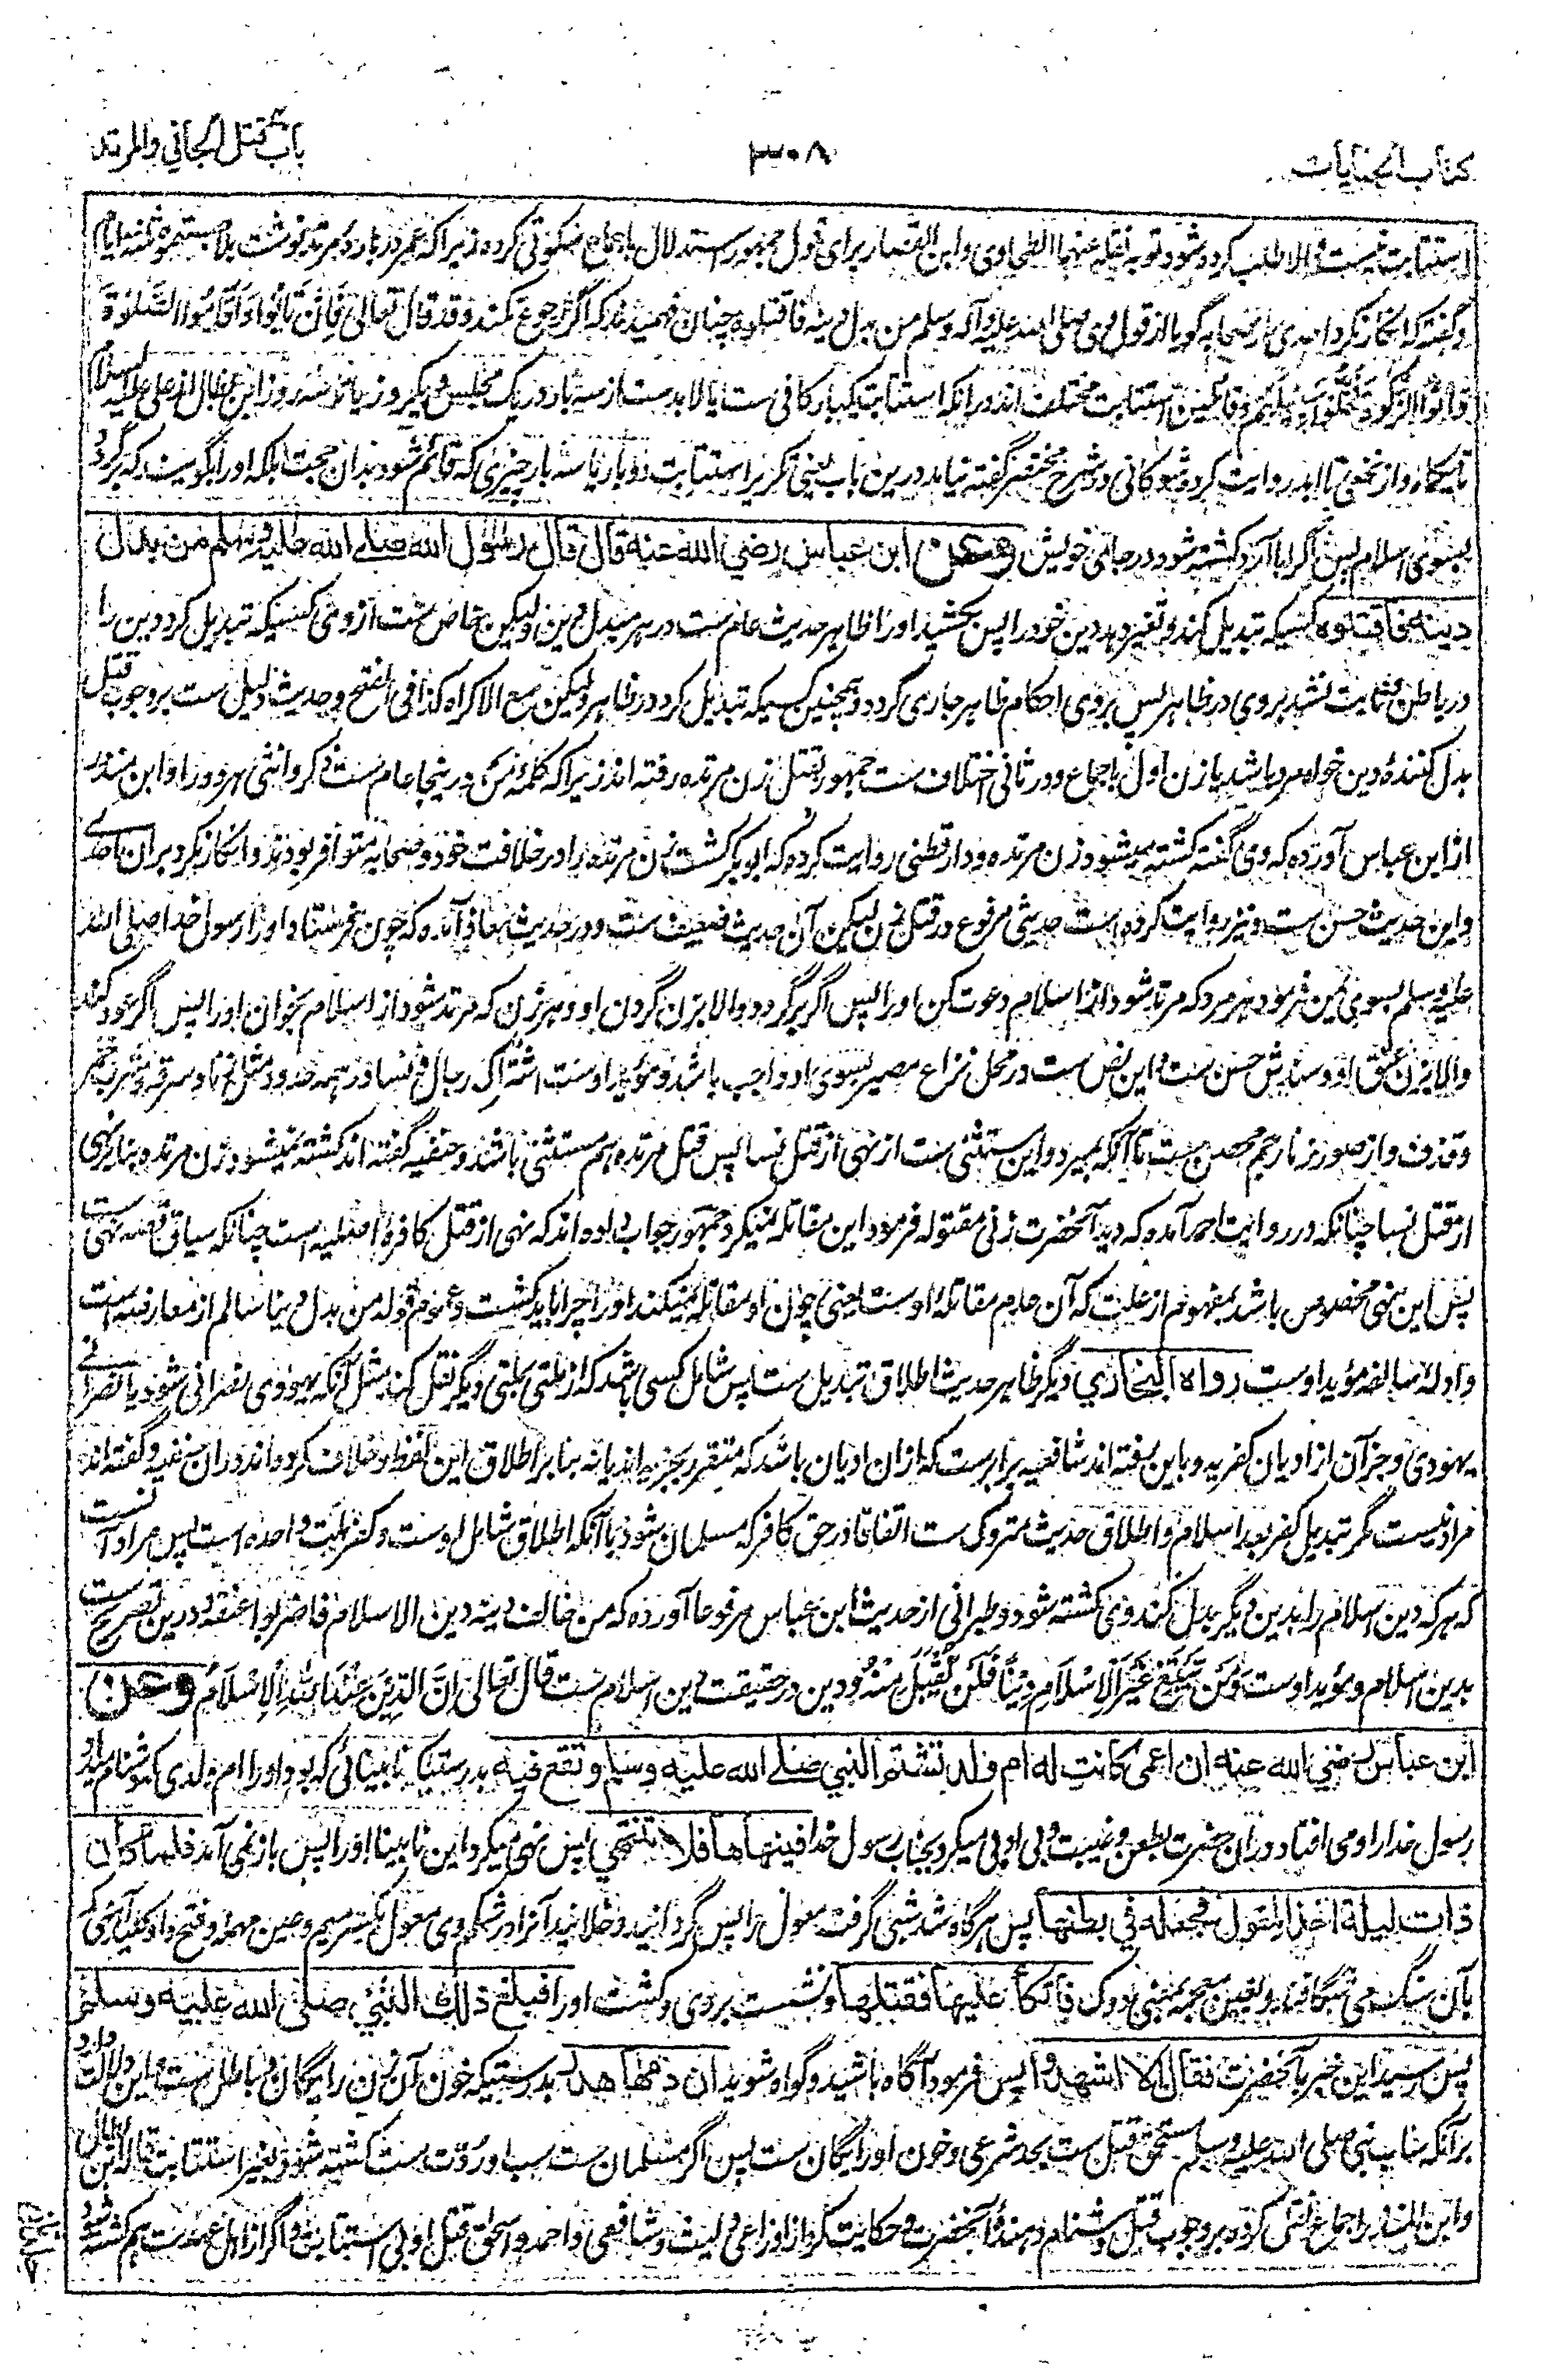 کتاب الجنایات
۳۰۸
باب قتل الجاني والمرتد
استتابت نیست والا طلب کرده شود توبه نقله عنهما الطحاوی وابن القصار برای قول جمهور استدلال باجماع سکوتی کرده زیرا که عمر در باره مرتد نوشت هلا حبستموه ثلثة ایام
وگفته که انکار نکرد احدی از صحابه گویا از قول وی صلی الله علیه وآله وسلم من بدل دینه فاقتلوه چنان فهمیدند که اگر رجوع نکند وقد قال تعالی فَإِنْ تَابُوا وَأَقَامُوا الصَّلٰوةَ
وَآتَوُا الزَّكٰوةَ فَخَلُّوا سَبِيلَهُمْ وقائلین استتابت مختلف اند در آنکه استتابت یکبار کافی ست یا لابد ست از سه بار در یک مجلس یا یکروز یا سه روز ابن بطال از علی علیه السلام
تا یکماه واز نخعی تا ابد روایت کرده وشوکانی در شرح مختصر گفته نیامد درین باب یعنی تکریر استتابت دو بار یا سه بار چیزی که قائم شود بدان حجت بلکه او را بگویند که برگرد
بسوی اسلام پس اگر ابا آرد کشته شود در جای خویش وعن ابن عباس رضي الله عنه قال قال رسول الله صلى الله عليه وسلم من بدل
دينه فاقتلوه کسیکه تبدیل کند وتغیر دهد دین خود را پس بکشید او را ظاهر حدیث عام ست در هر مبدل دین ولیکن خاص ست از وی کسیکه تبدیل کرد دین را
در باطن وثابت نشد بروی در ظاهر پس بروی احکام ظاهر جاری گردد وهمچنین کسیکه تبدیل کرد در ظاهر ولیکن مع الاکراه کذا فی الفتح وحدیث دلیل ست بر وجوب قتل
بدل کننده دین خواه مرد باشد یا زن اول باجماع ودر ثانی اختلاف ست جمهور بقتل زن مرتده رفته اند زیرا که کلمه من درینجا عام ست ذکر وانثی هر دو را وابن منذر
از ابن عباس آورده که وی گفته کشته میشود زن مرتده ودارقطنی روایت کرده که ابوبکر کشت زن مرتده را در خلافت خود وصحابه متوافر بودند وانکار نکرد بران احدی
واین حدیث حسن ست ونیز روایت کرده است حدیثی مرفوع در قتل زن لیکن آن حدیث ضعیف ست ودر حدیث معاذ آمده که چون بفرستاد او را رسول خدا صلی الله
علیه وسلم بسوی یمن فرمود هر مرد که مرتد شود از اسلام دعوت کن او را پس اگر برگردد والا بزن گردن او وهر زن که مرتد شود از اسلام بخوان او را پس اگر عود کند
والا بزن عنق او وسندش حسن ست واین نص ست در محل نزاع مصیر بسوی او واجب باشد ومؤید اوست اشتراک رجال ونسا در همه حدود مثل زنا وسرقه وشرب خمر
وقذف واز صور زنا رجم محصن ست تا آنکه بمیرد واین مستثنی ست از نهی از قتل نسا پس قتل مرتده هم مستثنی باشد وحنفیه گفته اند کشته نمیشود زن مرتده بنا بر نهی
از قتل نسا چنانکه در روایت احمد آمده که دید آنحضرت زنی مقتوله فرمود این مقاتله نمیکرد وجمهور جواب داده اند که نهی از قتل کافره اصلیه است چنانکه سیاق قصه نهی ست
پس این نهی مخصوص باشد بمفهوم از علت که آن عدم مقاتله اوست یعنی چون او مقاتله نمیکند او را چرا باید کشت وعموم قوله من بدل دینه سالم از معارضه است
وادله سالفه مؤید اوست رواه البخاري ودیگر ظاهر حدیث اطلاق تبدیل ست پس شامل کسی باشد که از ملتی بملتی دیگر نقل کند مثل آنکه یهودی نصرانی شود یا نصرانی
یهودی وجز آن از ادیان کفریه وباین رفته اند شافعیه برابر ست که ازان ادیان باشد که متقرر بجزیه اند یا نه بنا بر اطلاق این لفظ وخلاف کرده اند دران حنفیه وگفته اند
مراد نیست مگر تبدیل کفر بعد اسلام واطلاق حدیث متروک ست اتفاقا در حق کافر که مسلمان شود با آنکه اطلاق شامل اوست وکفر ملت واحده است پس مراد آنست
که هر که دین اسلام را بدین دیگر بدل کند وی کشته شود وطبرانی از حدیث ابن عباس مرفوعا آورده که من خالف دینه دین الاسلام فاضربوا عنقه ودرین تصریح ست
بدین اسلام ومؤید اوست وَمَنْ يَبْتَغِ غَيْرَ الْإِسْلَامِ دِينًا فَلَنْ يُقْبَلَ مِنْهُ ودین در حقیقت دین اسلام ست قال تعالی إِنَّ الدِّينَ عِنْدَ اللَّهِ الْإِسْلَامُ وعن
ابن عباس رضي الله عنه ان اعمى كانت له ام ولد تشتم النبي صلى الله عليه وسلم وتقع فيه بدرستیکه نابینائی که بود او را ام ولدی که دشنام میداد
رسول خدا را ومی افتاد دران حضرت بطعن وغیبت وبی ادبی میکرد بجناب رسول خدا فينهاها فلا تنتهي پس نهی میکرد این نابینا او را پس باز نمی آمد فلما كان
ذات ليلة اخذ المغول فجعله في بطنها پس هرگاه شد شبی گرفت معول را پس گردانید وخلانید آنرا در شکم وی معول بکسر میم وعین مهمله وفتح واو کلند آهنی که
بآن سنگ می شگافند وبغین معجمه بمعنی دوک فاتكأ عليها فقتلها ونشست بروی وکشت او را فبلغ ذلك النبي صلى الله عليه وسلم
پس رسید این خبر بآنحضرت فقال الا اشهدوا پس فرمود آگاه باشید وگواه شوید ان دمها هدر بدرستیکه خون آن زن رایگان وباطل ست واین دلالت دارد
بر آنکه ساب نبی صلی الله علیه وسلم مستحق قتل ست بحد شرعی وخون او رایگان ست پس اگر مسلمان ست سب او ردت ست کشته شود بغیر استتابت قاله ابن بطال
وابن المنذر اجماع نقل کرده بر وجوب قتل دشنام دهنده آنحضرت وحکایت کرد از اوزاعی ولیث وشافعی واحمد واسحاق قتل او بی استتابت واگر از اهل عهدت هم کشته شود